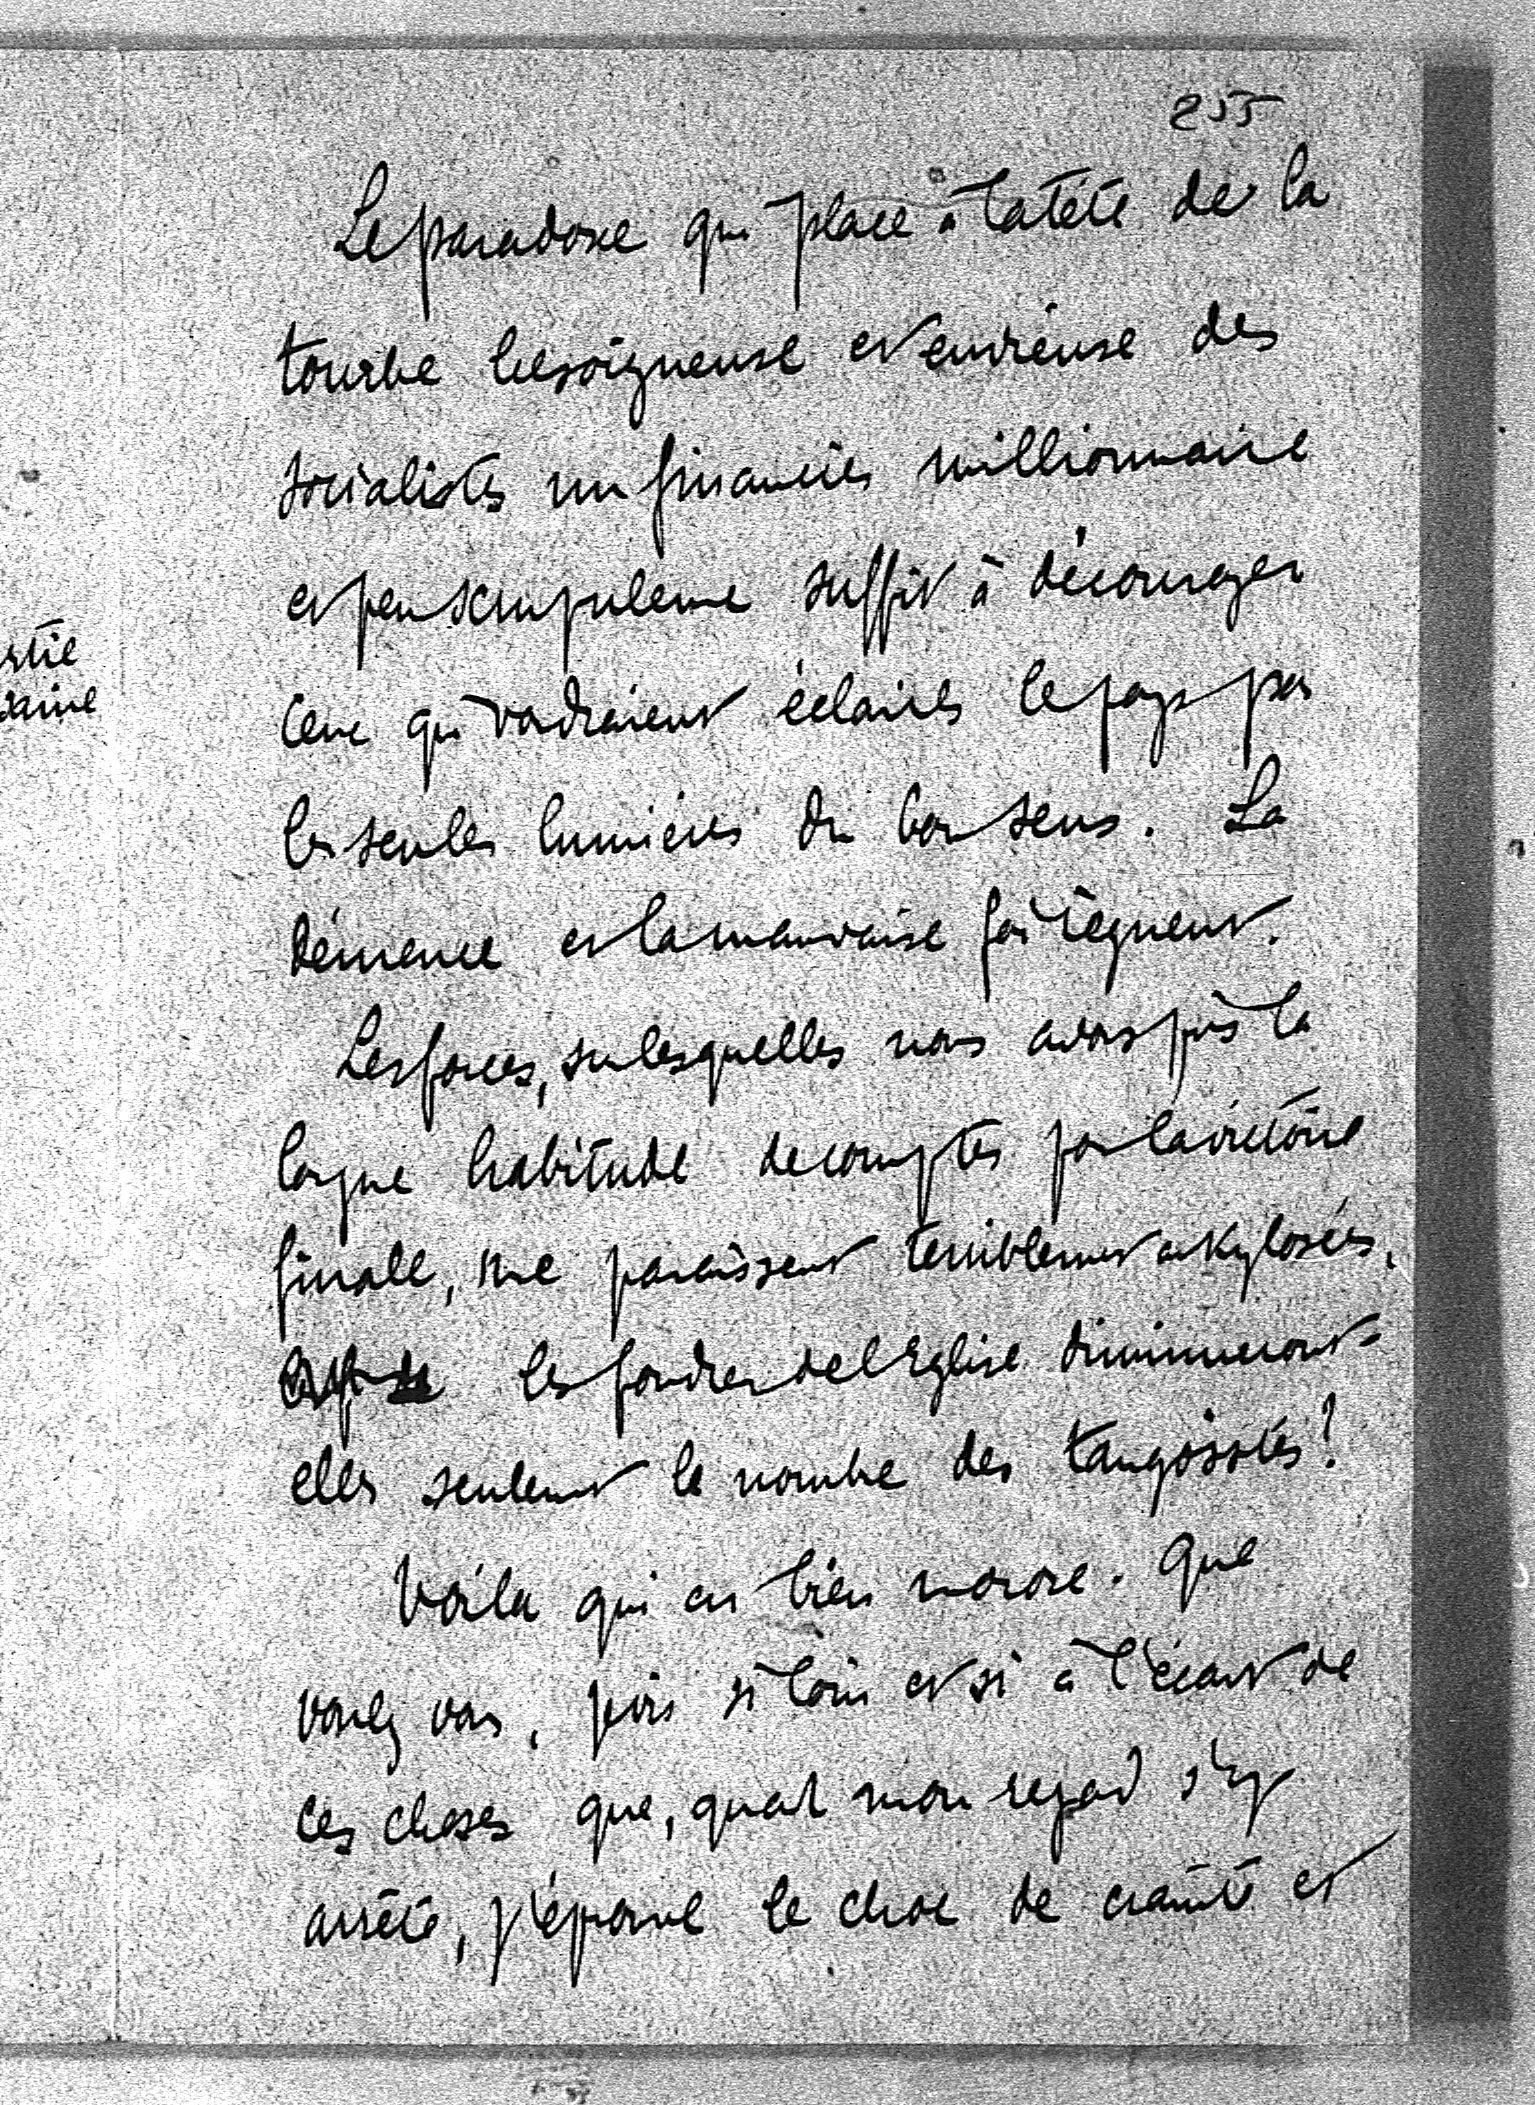 255
Le paradoxe qui place à la tête de la
tourbe besoigneuse et envieuse des
socialistes un financier millionnaire
et peu scrupuleux suffit à décourager
ceux qui voudraient éclairer le pays par
les seules lumières du bon sens. La
démence et la mauvaise foi règnent.
Les forces, sur lesquelles nous avons pris la
longue habitude de compter pour la victoire
finale, me paraissent terriblement ankylosées.
les foudres de l'Eglise diminueront-
elles seulement le nombre des tangoïstes?
Voila qui est bien morose. Que
voulez vous, je vis si loin et si à l'écart de
ces choses que, quand mon regard s'y
arrête, j'éprouve le choc de crainte et
stie
daine